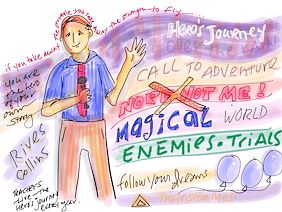 if you take away the struggle, you take away the strength to fly
Hero's Journey
you are
the hero
of your
own
story
CALL TO ADVENTURE
NOPE! NOT ME!
MAGICAL WORLD
ENEMIES • TRIALS
Rives
Collins
follow your dreams
TRANSFORMED
TEACHERS
LIVE THE
HERO'S JOURNEY
EACH YEAR